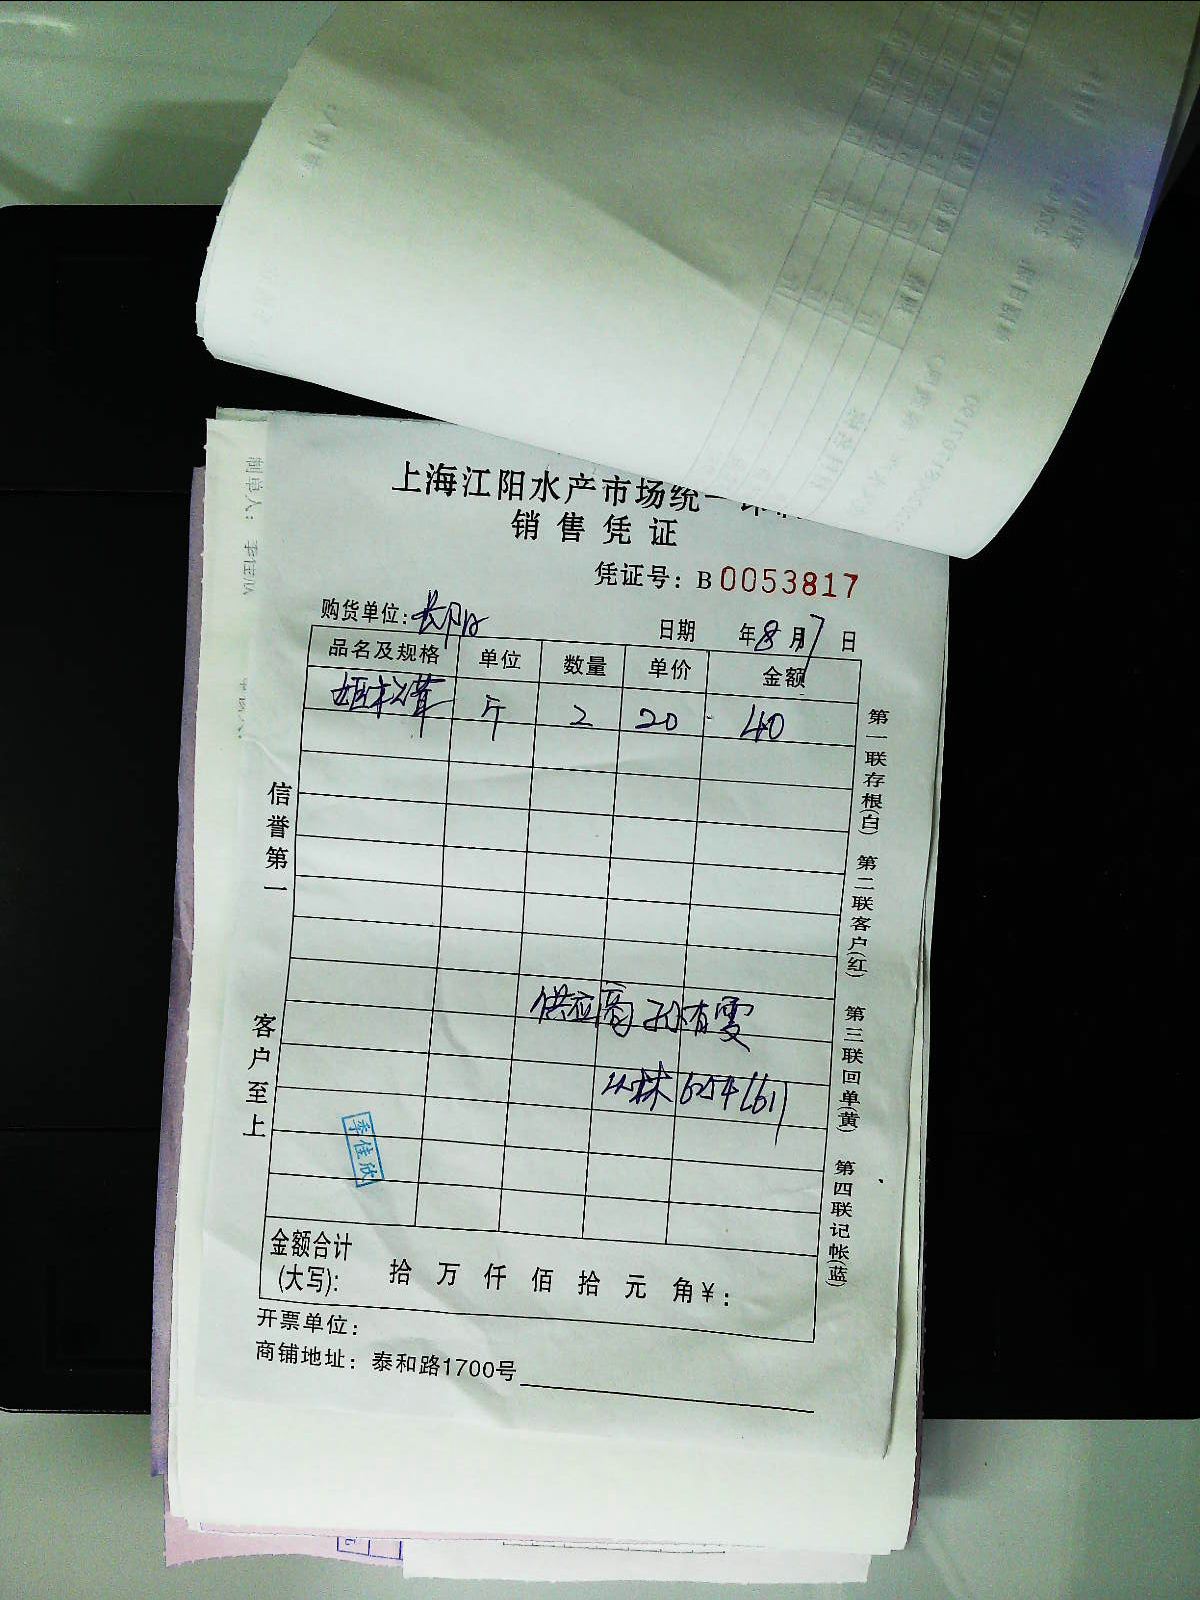 上海江阳水产市场统一
销售凭证
凭证号：B0053817
购货单位：长阳
日期 年8月7日
品名及规格 单位 数量 单价 金额
姬松茸 斤 2 20 40
供应商 孙有雯
季佳欣
金额合计
(大写)： 拾 万 仟 佰 拾 元 角 ¥：
开票单位：
商铺地址：泰和路1700号
信誉第一
客户至上
第一联存根(白) 第二联客户(红) 第三联回单(黄) 第四联记帐(蓝)
制单人：季佳欣